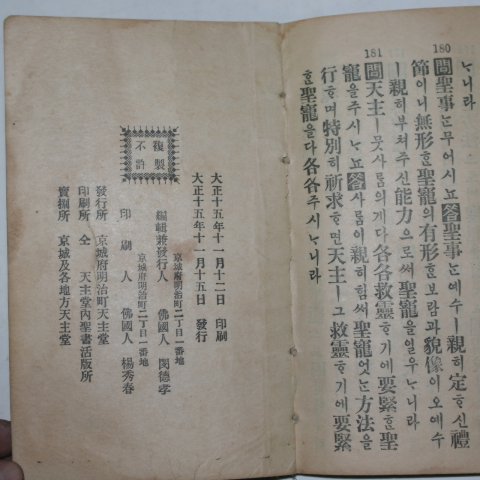 ᄂᆞ니라
180
問聖事ᄂᆞᆫ무어시뇨答聖事ᄂᆞᆫ예수ㅣ親히定ᄒᆞ신禮
節이니無形ᄒᆞᆫ聖寵의有形ᄒᆞᆫ보람과貌像이오예수
ㅣ親히부쳐주신能力으로써聖寵을일우ᄂᆞ니라
181
問天主ㅣ뭇사ᄅᆞᆷ의게다各各救靈ᄒᆞ기에要緊ᄒᆞᆫ聖
寵을주시ᄂᆞ뇨答사ᄅᆞᆷ이親히힘써聖寵엇ᄂᆞᆫ方法을
行ᄒᆞ며特別히祈求ᄒᆞ면天主ㅣ그救靈ᄒᆞ기에要緊
ᄒᆞᆫ聖寵을다各各주시ᄂᆞ니라
大正十五年十一月十二日 印刷
大正十五年十一月十五日 發行
複製
不許
京城府明治町二丁目一番地
編輯兼發行人 佛國人 閔德孝
京城府明治町二丁目一番地
印刷人 佛國人 楊秀春
發行所 京城府明治町天主堂
印刷所 仝 天主堂內聖書活版所
賣捌所 京城及各地方天主堂